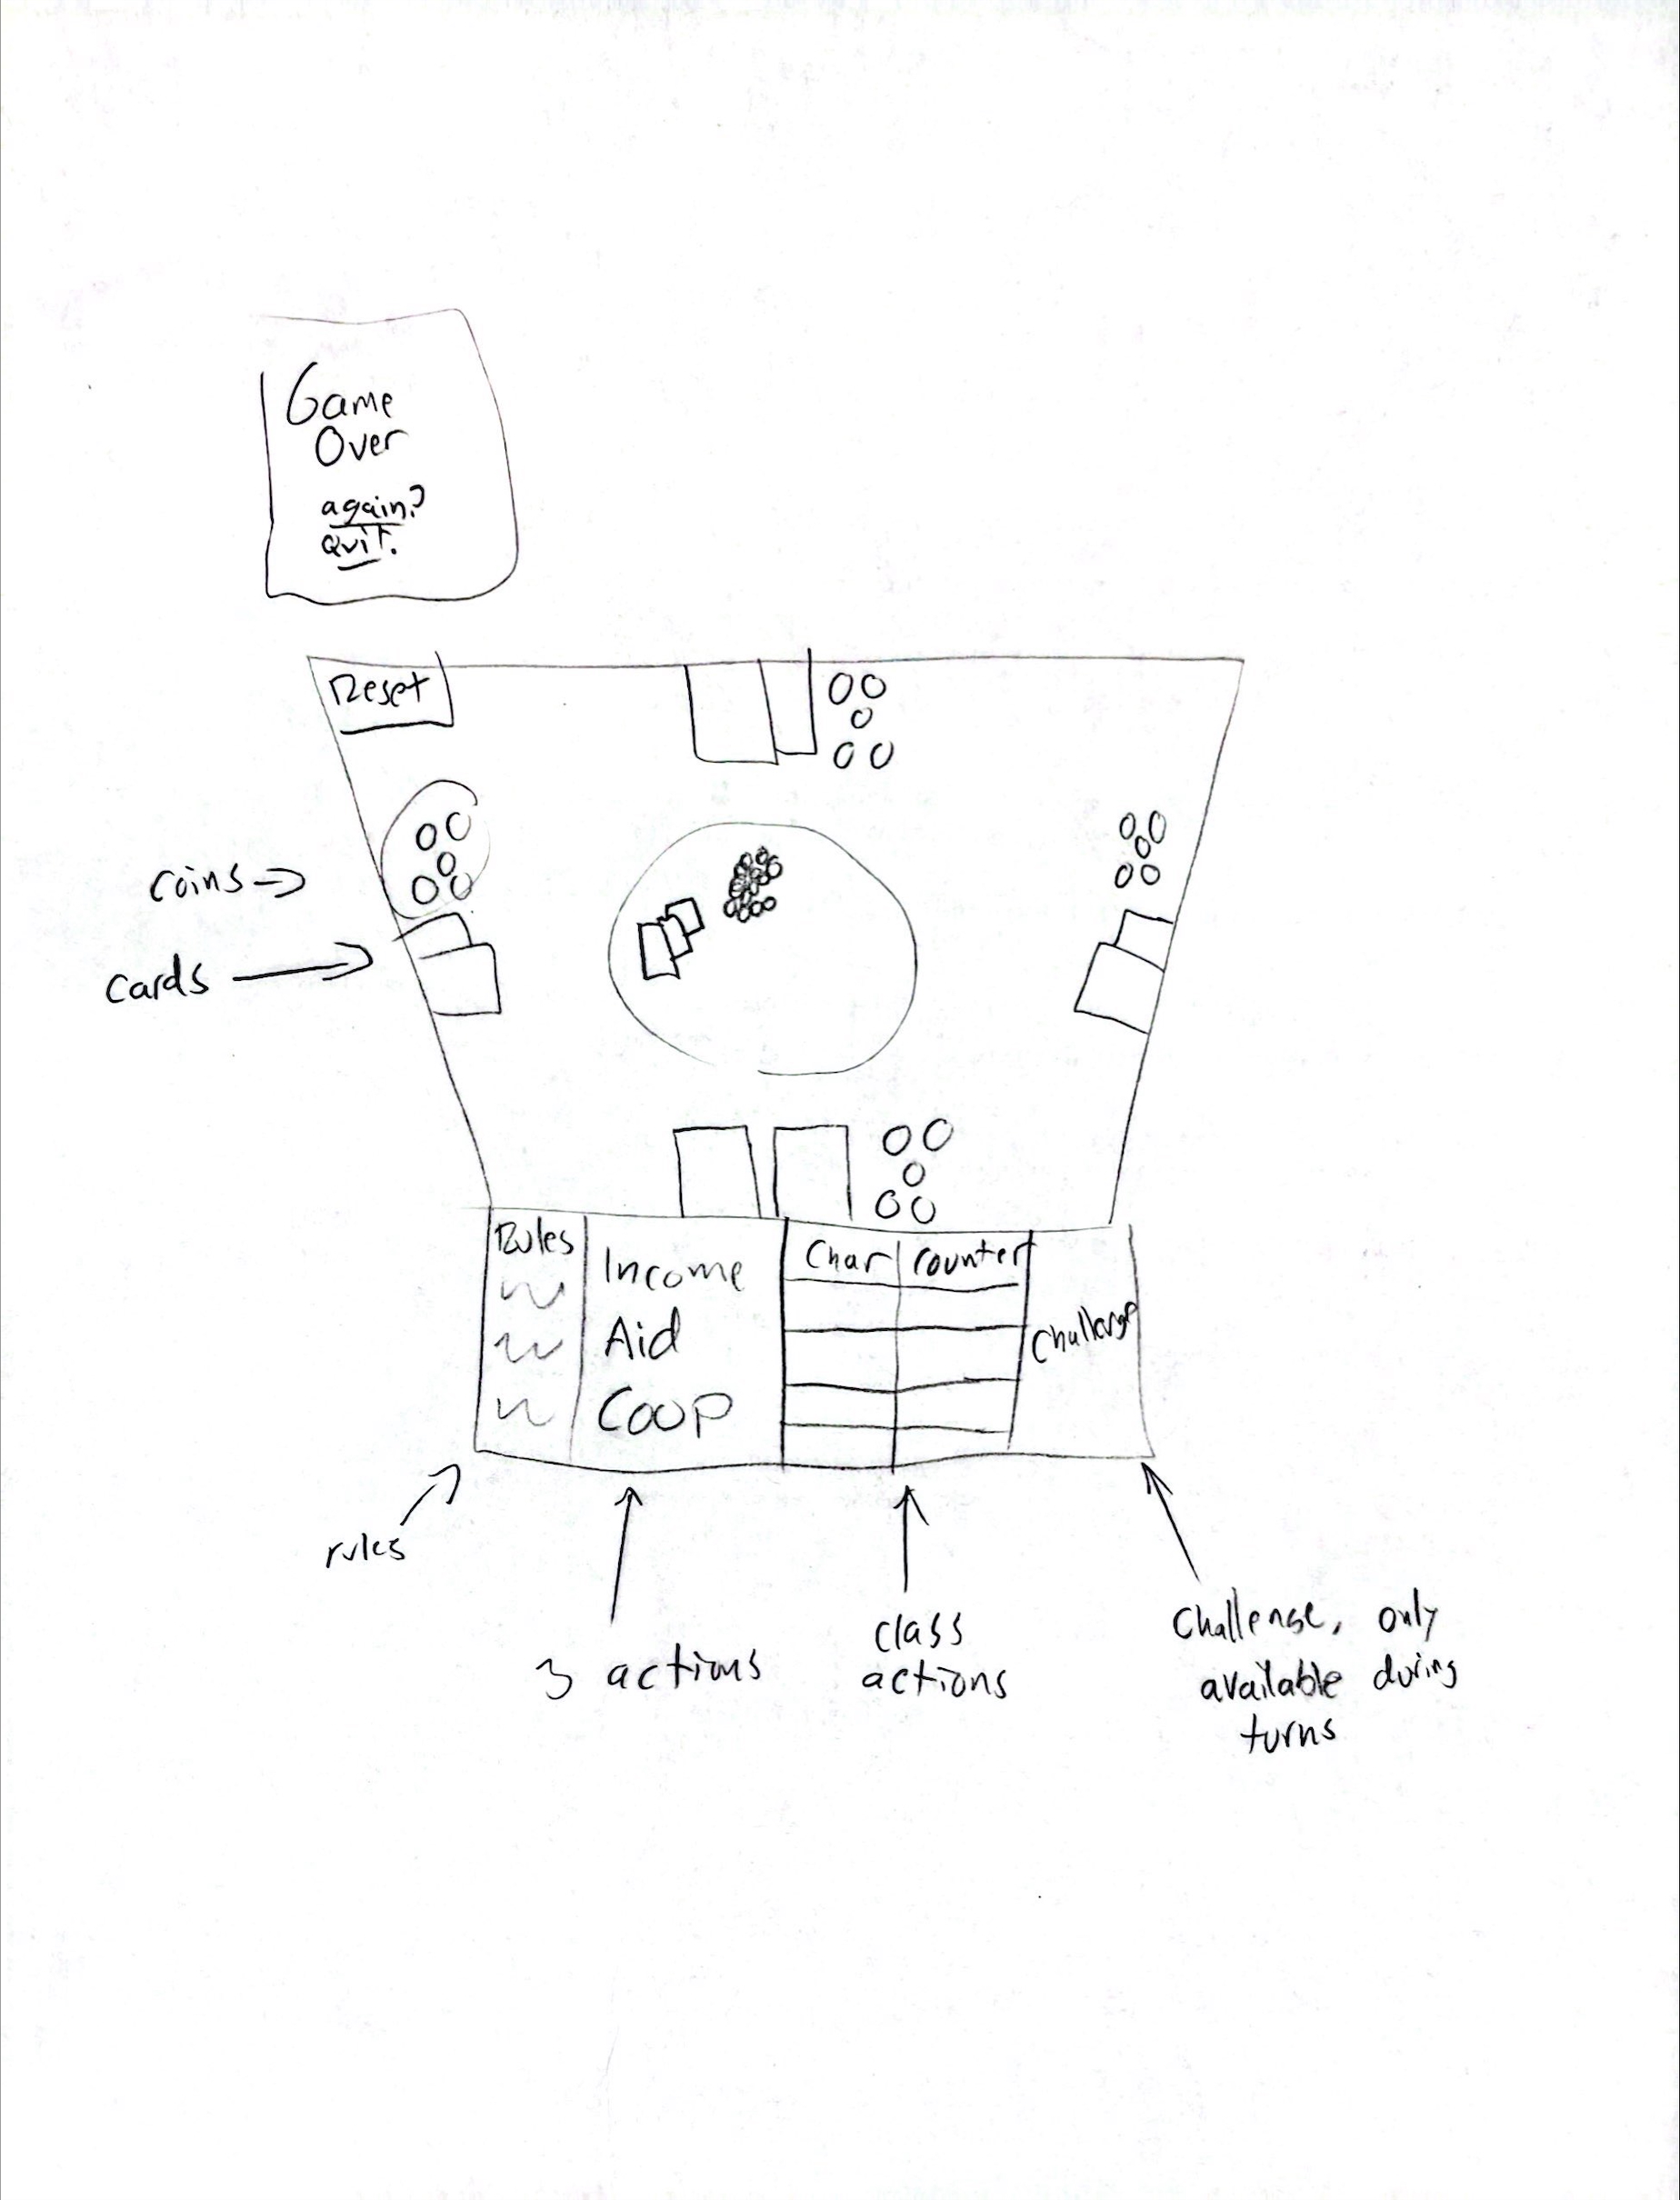 Game
Over
again?
Quit.
Reset
coins
cards
Rules
Income
Aid
Coup
Char
counter
Challenge
rules
3 actions
class
actions
Challenge, only
available during
turns